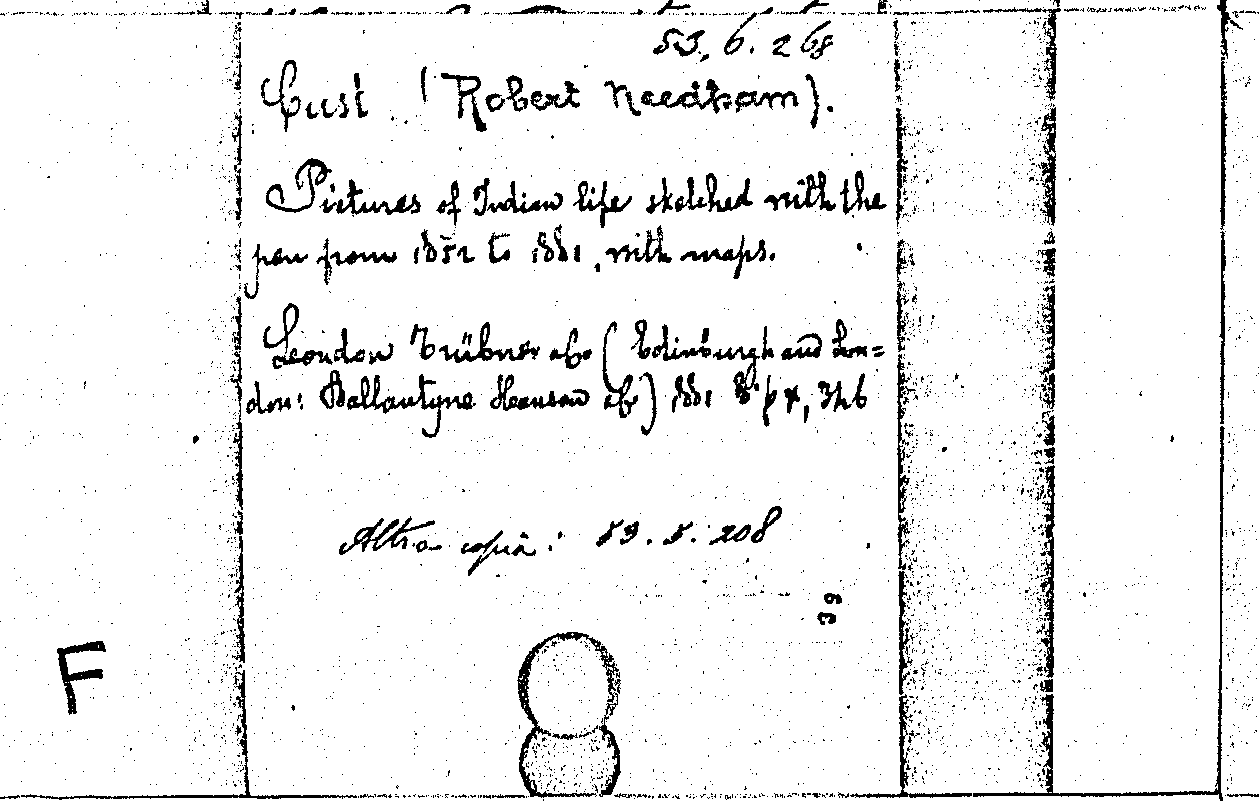 53.6.268
Cust (Robert Needham).
Pictures of Indian life sketched with the
pen from 1852 to 1881, with maps.
London Trübner &c (Edinburgh and Lon=
don: Ballantyne Hanson &c) 1881 8° p x, 346
Altra copia: 53.5.208
39
F